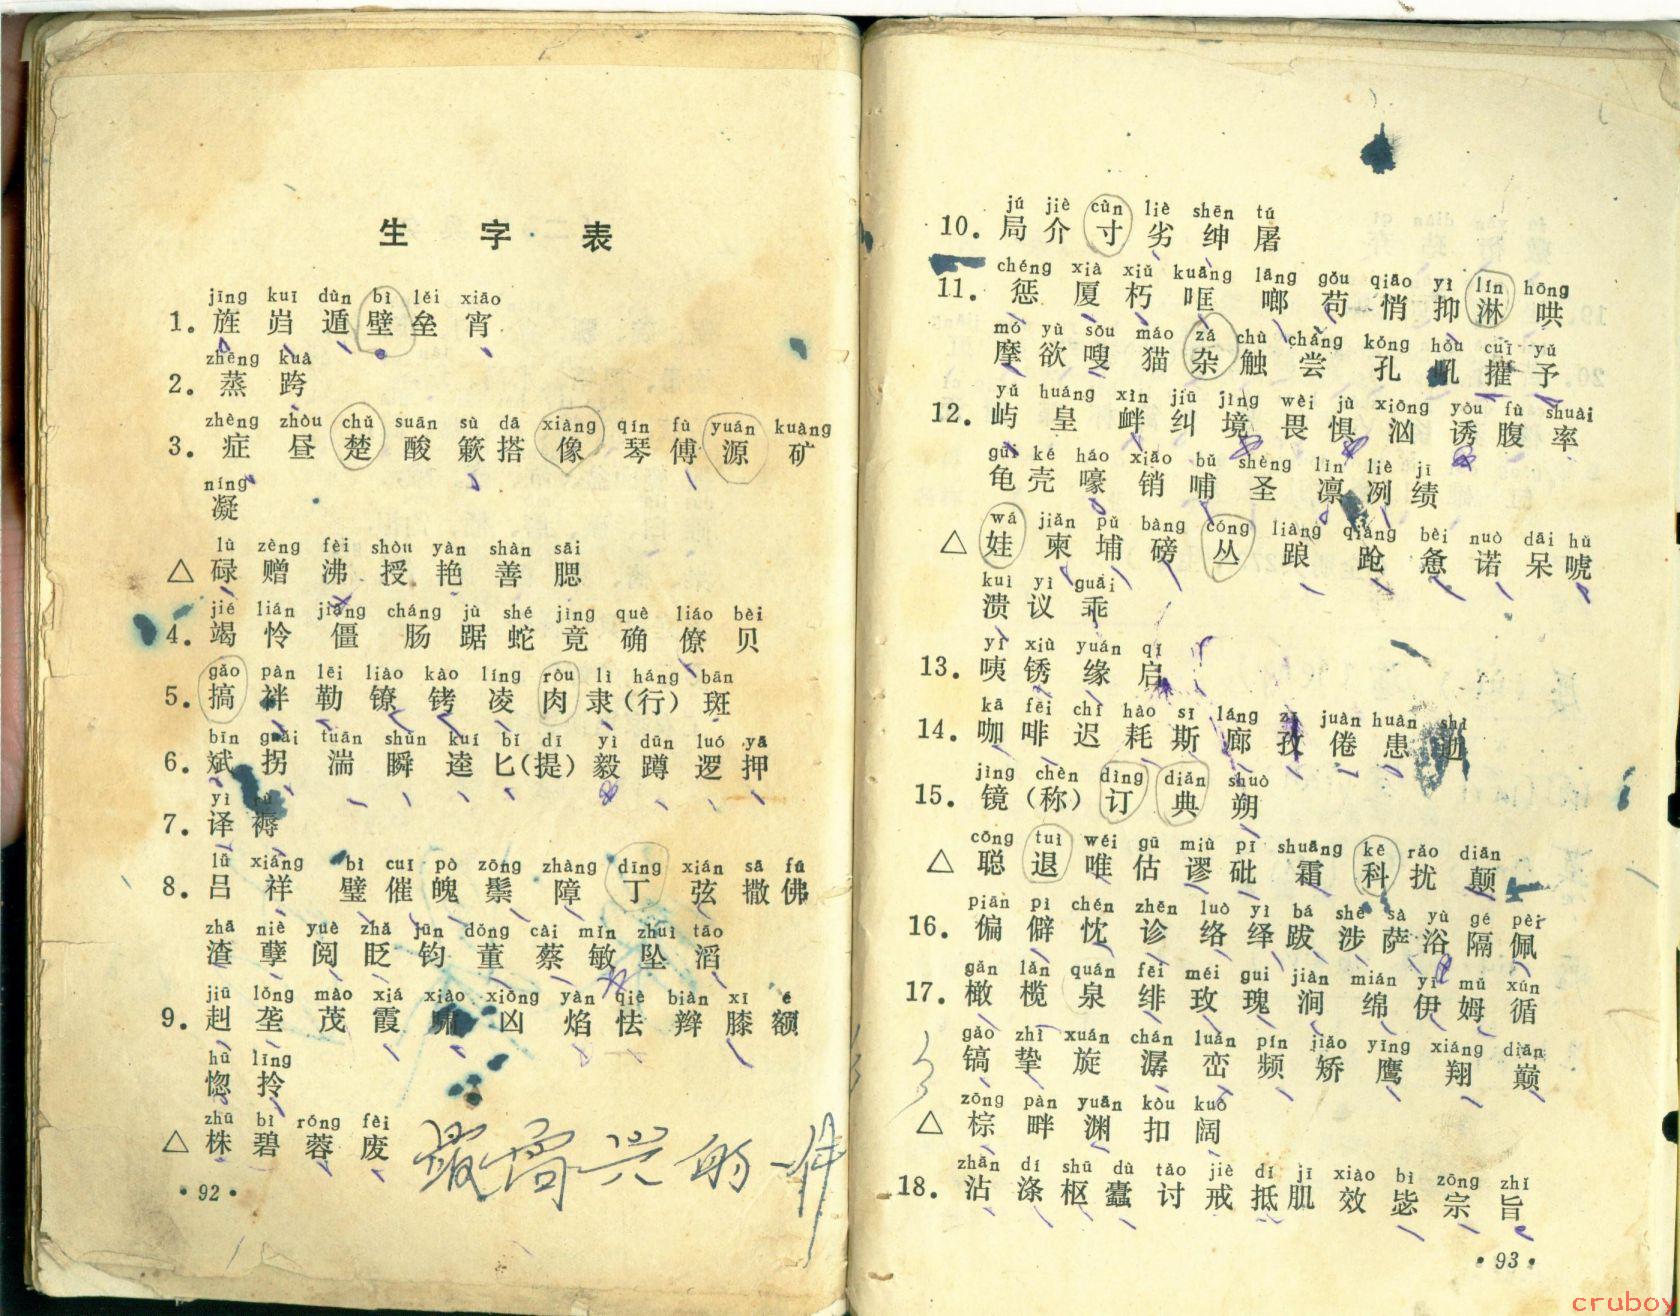 生字表
jīng kuī dùn bì lěi xiāo
1. 旌 岿 遁 壁 垒 宵
zhēng kuà
2. 蒸 跨
zhèng zhòu chǔ suān sù dā xiàng qín fù yuán kuàng
3. 症 昼 楚 酸 簌 搭 像 琴 傅 源 矿
níng
凝
lù zèng fèi shòu yàn shàn sāi
△ 碌 赠 沸 授 艳 善 腮
jié lián jiāng cháng jù shé jìng què liáo bèi
4. 竭 怜 僵 肠 踞 蛇 竟 确 僚 贝
gǎo pàn lēi liào kào líng ròu lì háng bān
5. 搞 袢 勒 镣 铐 凌 肉 隶 (行) 斑
bīn guǎi tuān shùn kuí bǐ dī yì dūn luó yā
6. 斌 拐 湍 瞬 逵 匕 (提) 毅 蹲 逻 押
yì rù
7. 译 褥
lǚ xiáng bì cuī pò zōng zhàng dīng xián sā fú
8. 吕 祥 璧 催 魄 鬃 障 丁 弦 撒 佛
zhā niè yuè zhǎ jūn dǒng cài mǐn zhuì tāo
渣 孽 阅 眨 钧 董 蔡 敏 坠 滔
jiū lǒng mào xiá xiào xiōng yàn qiè biàn xī é
9. 赳 垄 茂 霞 啸 凶 焰 怯 辫 膝 额
hū līng
惚 拎
zhū bì róng fèi
△ 株 碧 蓉 废
最高兴的一件
·92·
jú jiè cùn liè shēn tú
10. 局 介 寸 劣 绅 屠
chéng xià xiǔ kuāng lāng gǒu qiāo yì lín hōng
11. 惩 厦 朽 哐 啷 苟 悄 抑 淋 哄
mó yù sōu māo zá chù cháng kǒng hǒu cuī yǔ
摩 欲 嗖 猫 杂 触 尝 孔 吼 摧 予
yǔ huáng xìn jiū jìng wèi jù xiōng yòu fù shuài
12. 屿 皇 衅 纠 境 畏 惧 汹 诱 腹 率
guī ké háo xiāo bǔ shèng lǐn liè jī
龟 壳 嚎 销 哺 圣 凛 冽 绩
wá jiǎn pǔ bàng cóng liàng qiàng bèi nuò dāi hǔ
△ 娃 柬 埔 磅 丛 踉 跄 惫 诺 呆 唬
kuì yì guāi
溃 议 乖
yí xiù yuán qǐ
13. 咦 锈 缘 启
kā fēi chí hào sī láng zī juàn huàn shì
14. 咖 啡 迟 耗 斯 廊 孜 倦 患 逝
jìng chèn dìng diǎn shuò
15. 镜 (称) 订 典 朔
cōng tuì wéi gū miù pī shuāng kē rǎo diān
△ 聪 退 唯 估 谬 砒 霜 科 扰 颠
piān pì chén zhěn luò yì bá shè sà yù gé pèi
16. 偏 僻 忱 诊 络 绎 跋 涉 萨 浴 隔 佩
gǎn lǎn quán fēi méi gui jiàn mián yī mǔ xún
17. 橄 榄 泉 绯 玫 瑰 涧 绵 伊 姆 循
gǎo zhì xuán chán luán pín jiǎo yīng xiáng diān
镐 挚 旋 潺 峦 频 矫 鹰 翔 巅
zōng pàn yuān kòu kuò
△ 棕 畔 渊 扣 阔
zhān dí shū dù tǎo jiè dǐ jī xiào bì zōng zhǐ
18. 沾 涤 枢 蠹 讨 戒 抵 肌 效 毖 宗 旨
·93·
cruboy